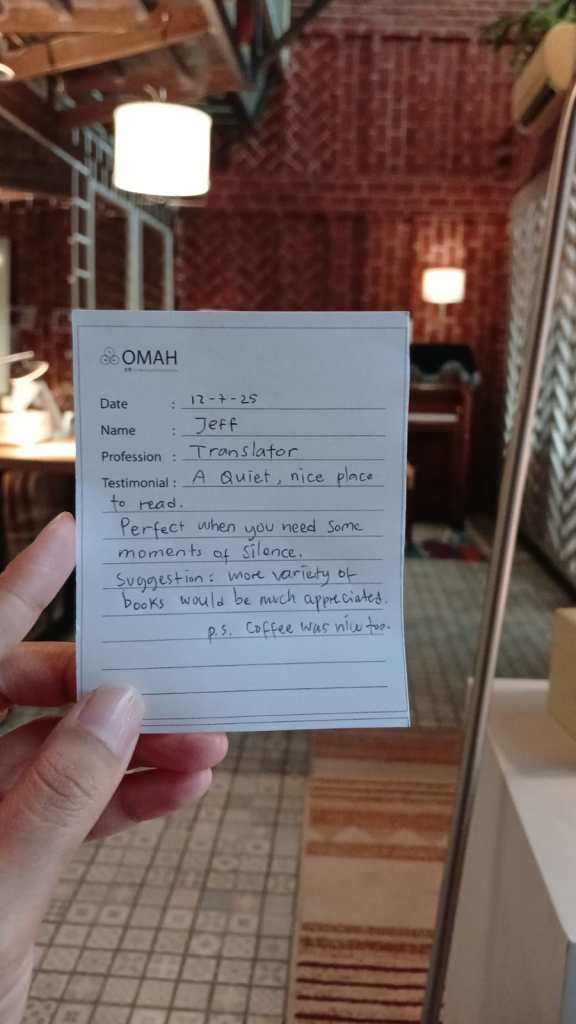 OMAH
Date : 12-7-25
Name : Jeff
Profession : Translator
Testimonial : A Quiet, nice place
to read.
Perfect when you need some
moments of silence.
Suggestion: more variety of
books would be much appreciated.
p.s. Coffee was nice too.